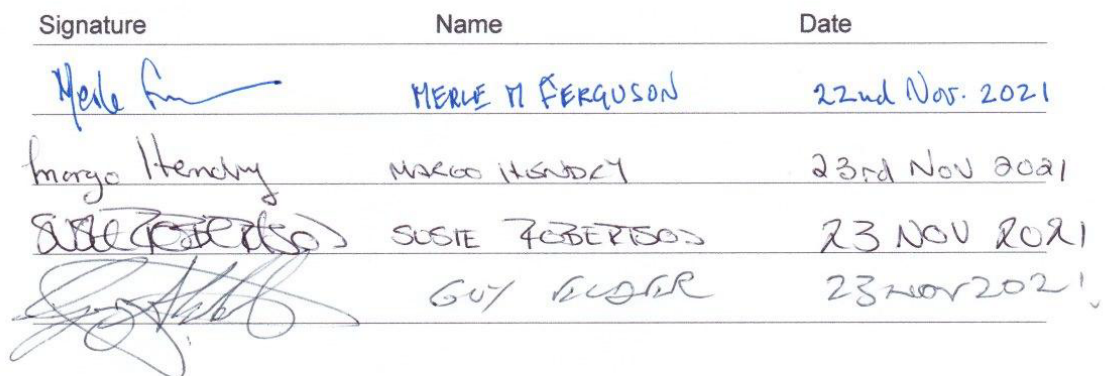 Signature Name Date
Merle MERLE M FERGUSON 22nd Nov. 2021
Margo Hendry MARGO HENDRY 23rd Nov 2021
SUSIE ROBERTSON SUSIE ROBERTSON 23 NOV 2021
GUY 23 NOV 2021